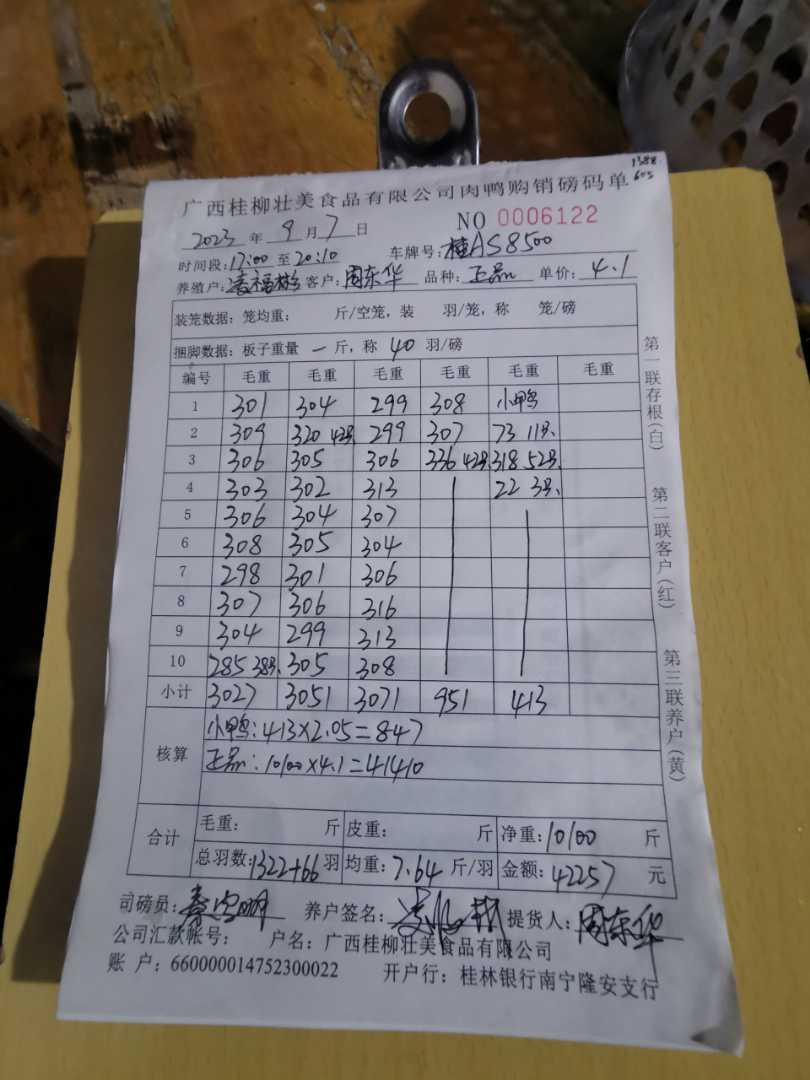 1388
605
广西桂柳壮美食品有限公司肉鸭购销磅码单
2023 年 9 月 7 日 NO 0006122
时间段: 17:00 至 20:10 车牌号: 桂AS8500
养殖户: 凌福彬 客户: 周东华 品种: 正品 单价: 4.1
装笼数据: 笼均重: 斤/空笼, 装 羽/笼, 称 笼/磅
捆脚数据: 板子重量 一 斤, 称 40 羽/磅
编号 毛重 毛重 毛重 毛重 毛重 毛重
1 301 304 299 308 小鸭
2 309 320 42只 299 307 73 11只.
3 306 305 306 336 42只 318 52只.
4 303 302 313 22 3只.
5 306 304 307
6 308 305 304
7 298 301 306
8 307 306 316
9 304 299 313
10 285 38只. 305 308
小计 3027 3051 3071 951 413
核算 小鸭: 413×2.05=847
正品: 10100×4.1=41410
合计 毛重: 斤 皮重: 斤 净重: 10100 斤
总羽数: 1322+66 羽 均重: 7.64 斤/羽 金额: 42257 元
司磅员: 养户签名: 提货人: 周东华
公司汇款帐号: 户名: 广西桂柳壮美食品有限公司
账 户: 660000014752300022 开户行: 桂林银行南宁隆安支行
第一联存根(白)
第二联客户(红)
第三联养户(黄)